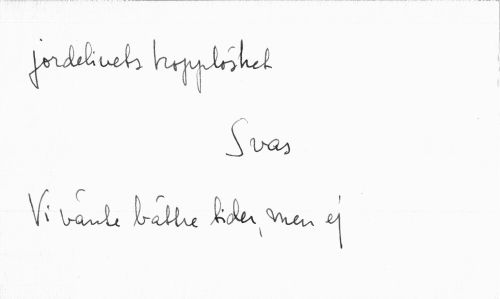 jordelivets hopplöshet
Svar
Vi vänte bättre tider, men ej